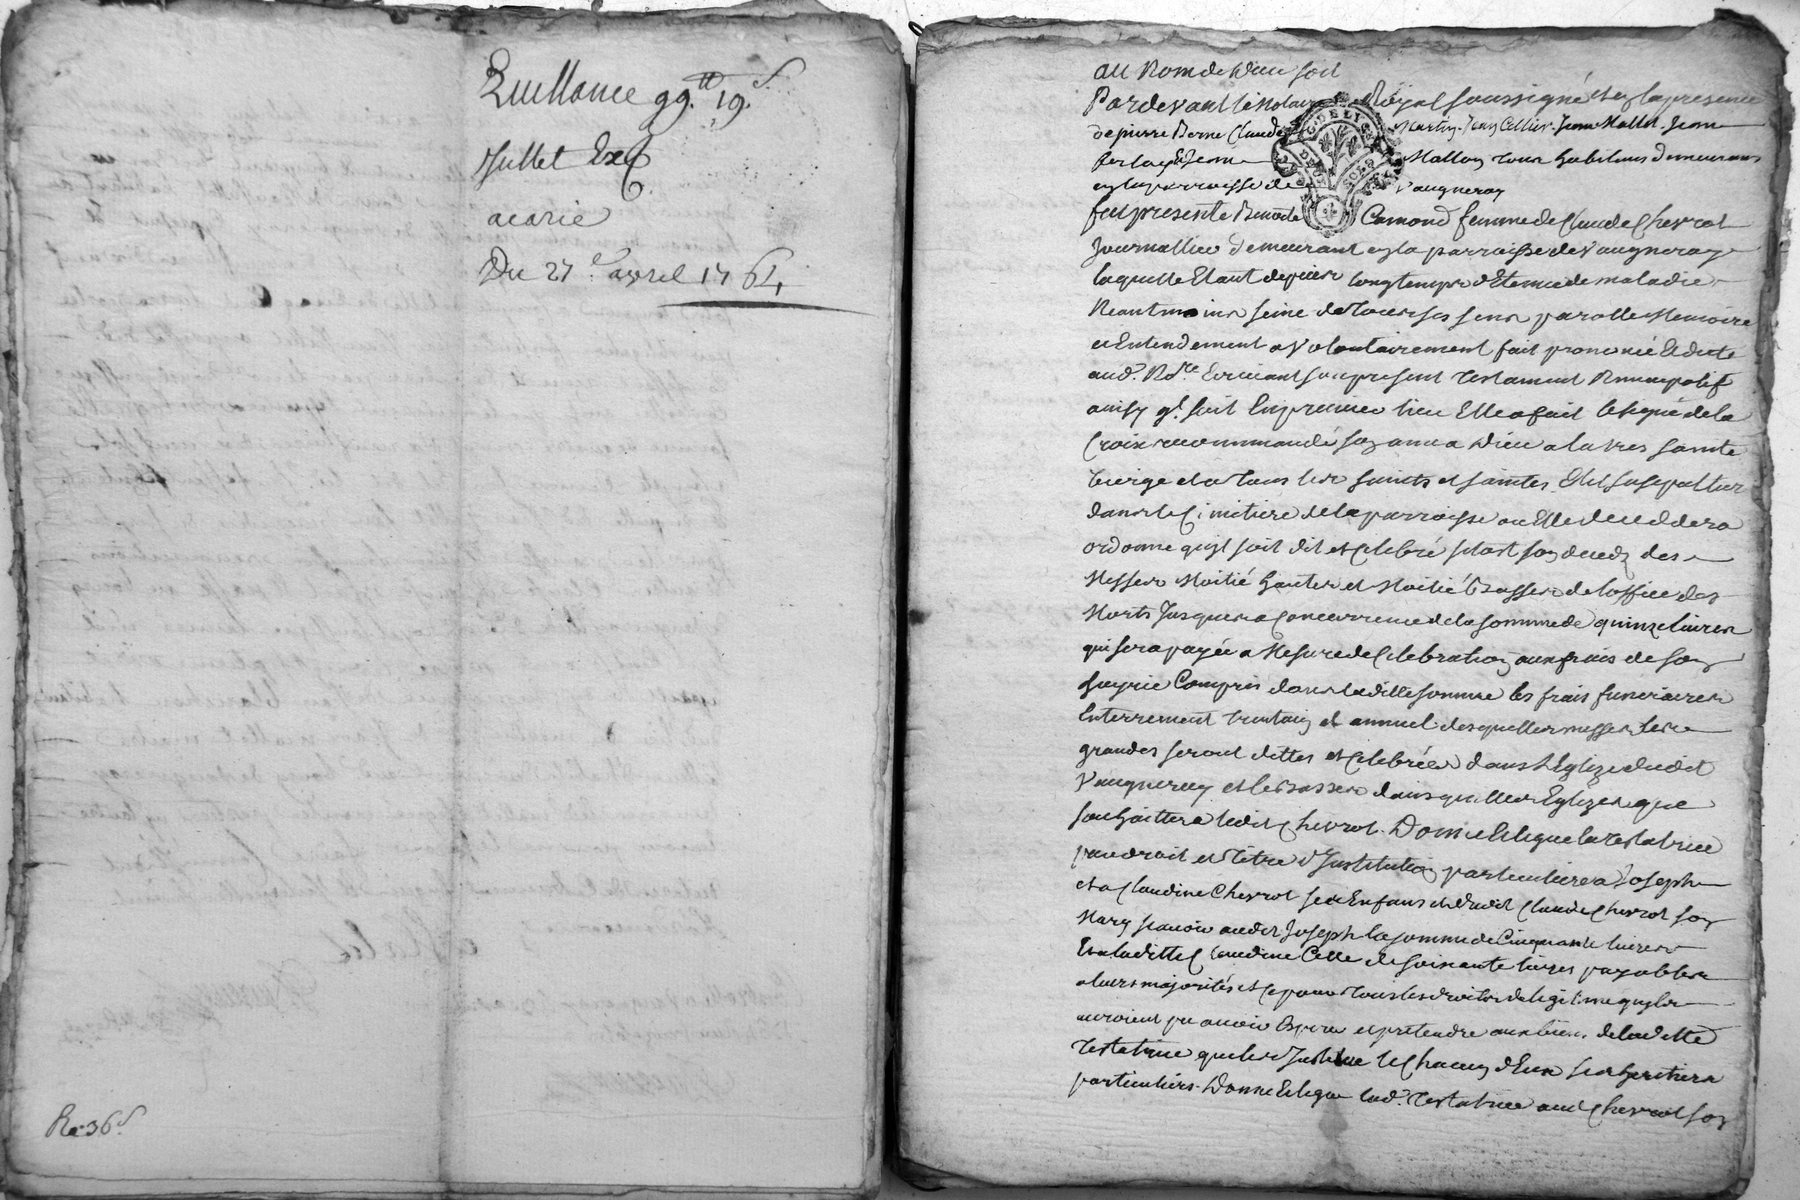 Quittance 99.tt 19.s
Jullet Exp
acarie
Du 27e avril 1764
Re 36s
au Nom de Dieu soit
Pardevant le Notaire Royal soussigné et en la presence
de pierre Berne Claude Martin Jean Cellier Jean Mallet Jean
et Jean Mallon tous habitans demeurans
en la parroisse de Vaugneray
fut presente Benoite Camond femme de Claude Chevrot
Journallier demeurant en la parroisse de Vaugneray
laquelle Etant depuis longtemps detenue de maladie
Neantmoins seine de tous ses sens parolle Memoire
et Entendement a Volontairement fait prononcé et dicté
aud. Nore Ecrivant son present testament Nuncupatif
ainsy qt. suit En premier lieu Elle a fait le signe de la
Croix recommandé son ame a Dieu a la tres sainte
vierge et a tous les saints et saintes Elit sa sepulture
dans le Cimitiere de la parroisse ou Elle decedera
ordonne qu'il soit dit et Celebré sitost son deced des
Messes Moitié hautes et Moitié basses de l'office des
Morts Jusques a Concurrence de la somme de quinze livres
qui sera payée a Mesure de Celebration aux frais de son
hoyrie Compris dans laditte somme les frais funeraires
Enterrement trentain et annuel desquelles messes les
grandes seront dittes et Celebrées dans L'Eglize dudit
Vaugneray et les basses dans quelles Eglizes que
souhaittera ledit Chevrot. Donne et legue la testatrice
par droit et titre d'Institution particuliere a Joseph
et a Claudine Chevrot ses Enfans et dudit Claude Chevrot son
Mary scavoir audit Joseph la somme de Cinquante livres
Et a laditte Claudine Celle de soixante livres payables
a leurs majorités et Ce pour tous les droits de legitime qu'ils
auroient pu avoir Esperer et pretendre aux biens de laditte
testatrice quelle Institue et Chacun d'Eux ses heritiers
particuliers. Donne et legue lad. testatrice aud Chevrot son